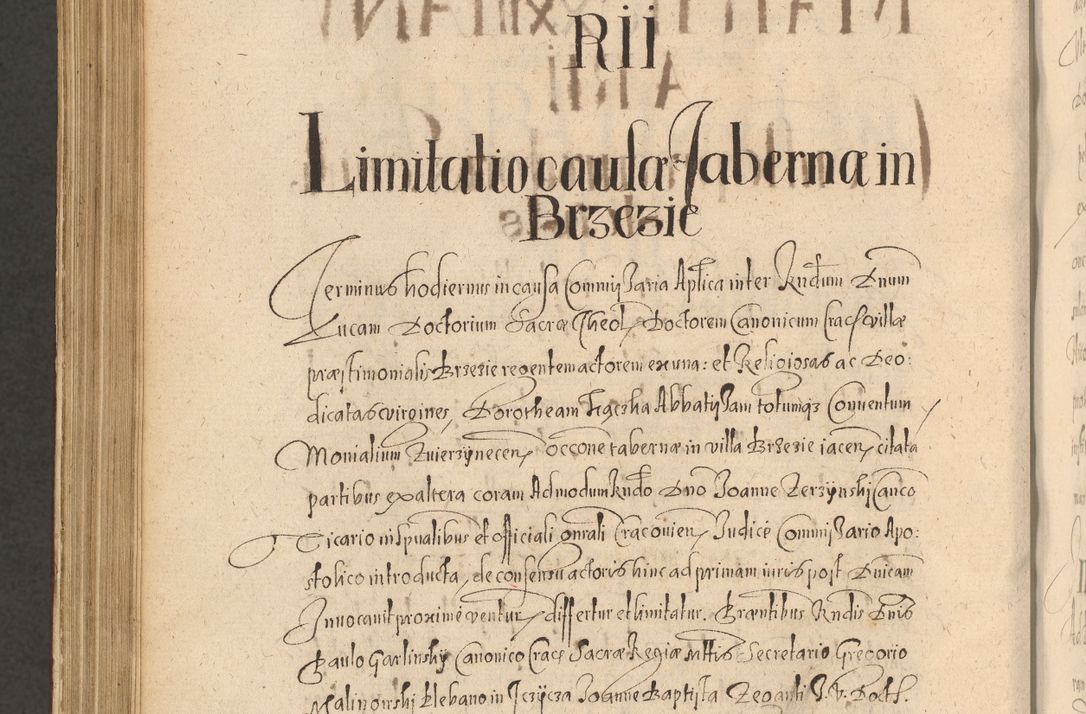 Rii
Limitatio causæ Tabernæ in
Brzezie
Terminus hodiernus in causa Commissaria Aplica inter Rndum Dnum
Lucam Doctorium Sacræ Theol. Doctorem Canonicum Crac. villæ
præstimonialis Brzezie regentem actorem ex una: et Religiosas ac Deo:
dicatas virgines, Dorotheam Kączka Abbatissam totumq3 Conventum
Monialium Zwierzynecen, occone tabernæ in villa Brzezie iacen, citata
partibus ex altera coram Admodum Rndo Dno Joanne Zerzynski Canco
Vicario in Spualibus et officiali gnrali Cracovien Judice Commissario Apo:
stolico introducta, de consensu actoris hinc ad primam iuris post Dnicam
Invocavit proximè ventur, differtur et limitatur. Præntibus Rndis Dnis
Paulo Garlinsky Canonico Crac. Sacræ Regiæ Mttis Secretario Gregorio
Malinowski plebano in Jczycza Joanne Baptista Zeoanli J. V. Doct.